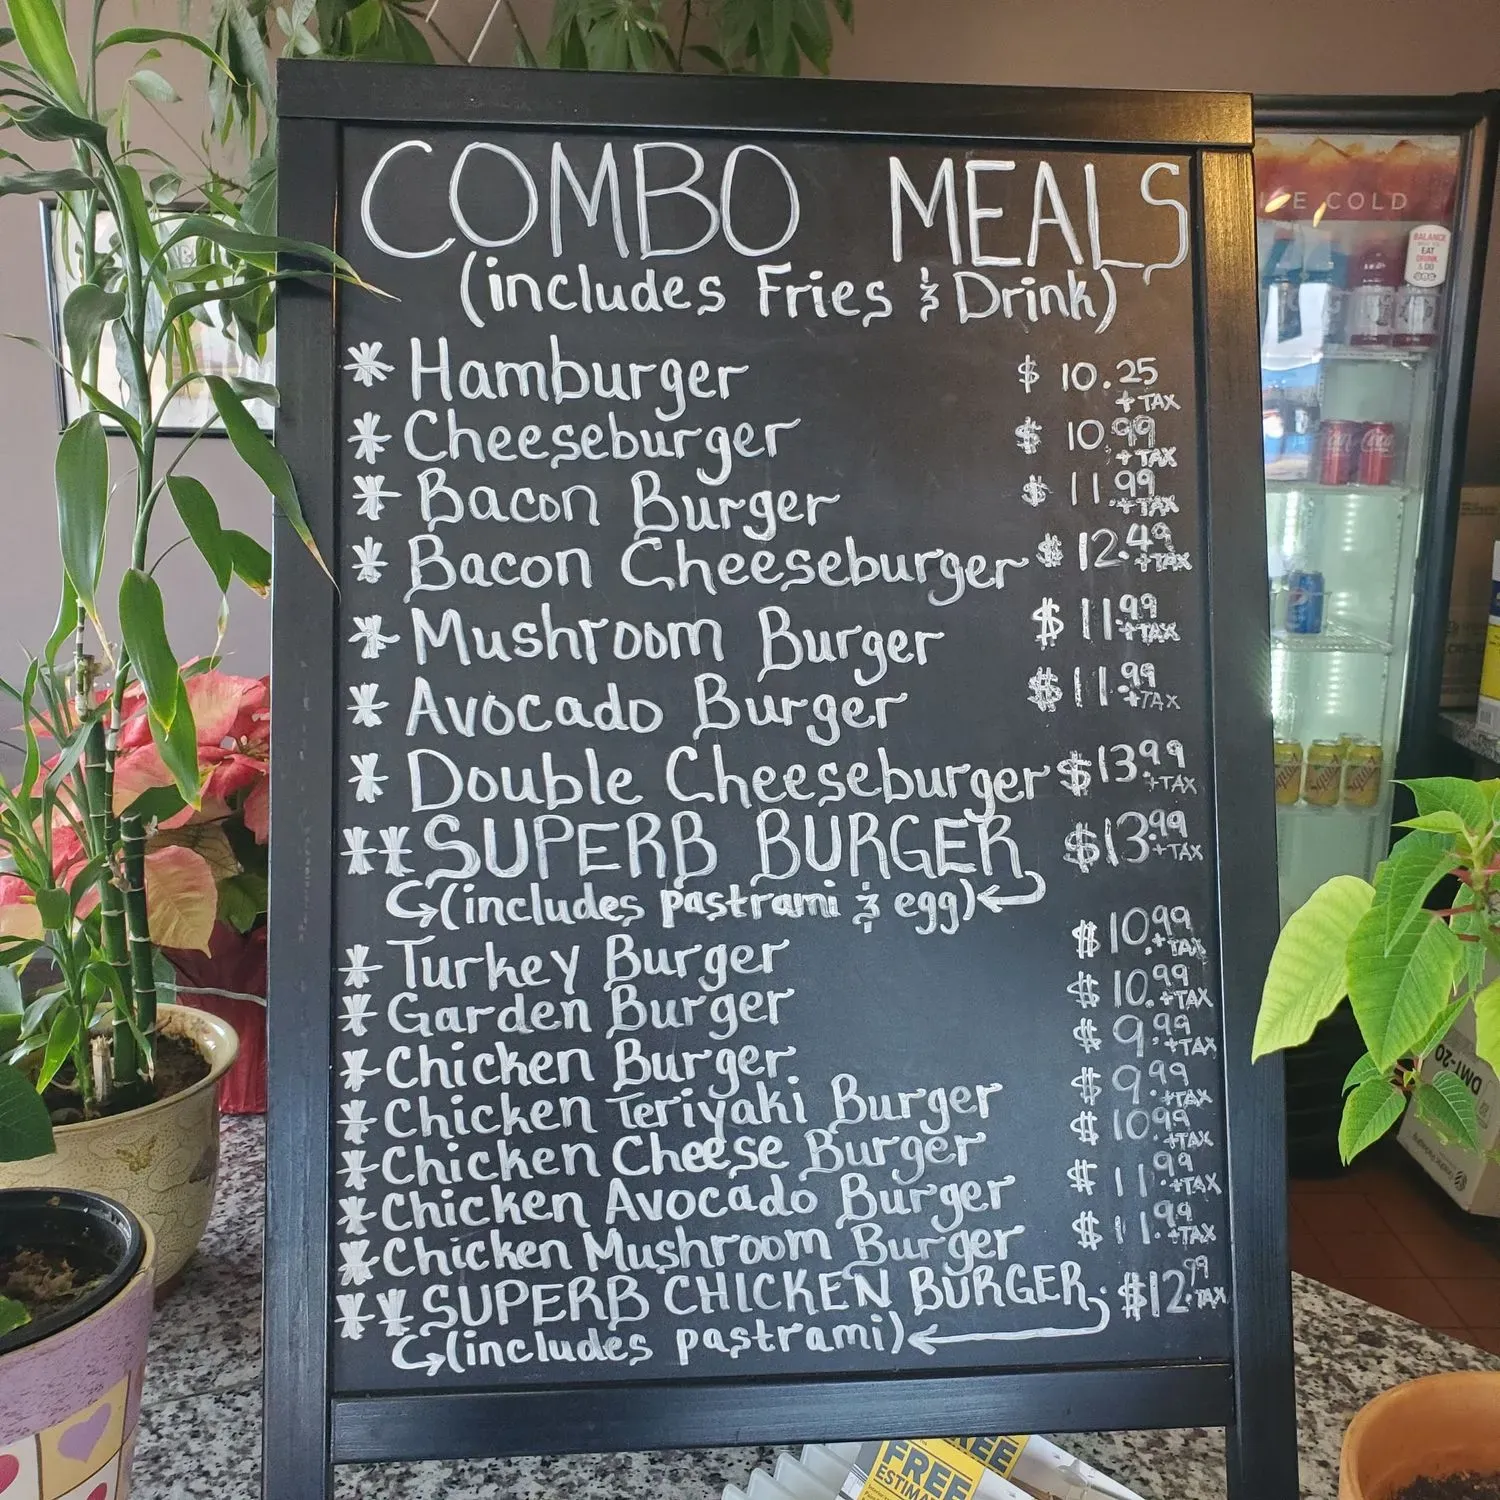 COMBO MEALS
(includes Fries & Drink)
* Hamburger $ 10.25 + TAX
* Cheeseburger $ 10.99 + TAX
* Bacon Burger $ 11.99 + TAX
* Bacon Cheeseburger $ 12.49 + TAX
* Mushroom Burger $ 11.99 + TAX
* Avocado Burger $ 11.99 + TAX
* Double Cheeseburger $13.99 + TAX
** SUPERB BURGER $13.99 + TAX
(includes pastrami & egg)
* Turkey Burger $10.99 + TAX
* Garden Burger $10.99 + TAX
* Chicken Burger $ 9.99 + TAX
* Chicken Teriyaki Burger $ 9.99 + TAX
* Chicken Cheese Burger $ 10.99 + TAX
* Chicken Avocado Burger $ 11.99 + TAX
* Chicken Mushroom Burger $ 11.99 + TAX
** SUPERB CHICKEN BURGER $12.99 + TAX
(includes pastrami)
ICE COLD
BALANCE
EAT
DRINK
& DO
Squirt
DMT-20
FREE
FREE
ESTIMA